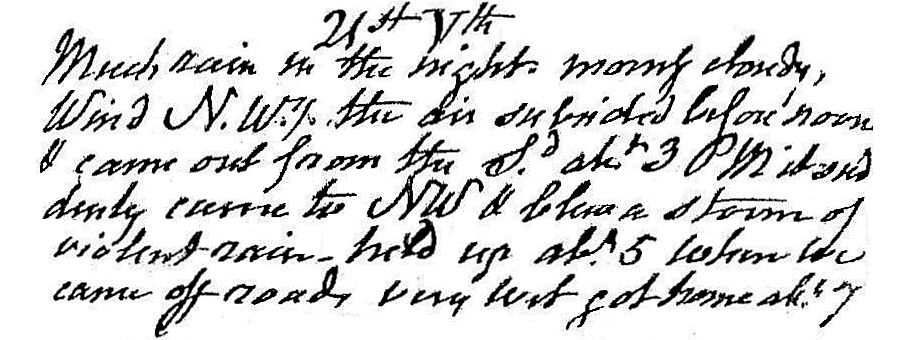 21st Vth
Much rain in the night. morng cloudy,
Wind N.Wy. the air subsided before noon
& came out from the S.d abt 3 PM it sud
denly came to NW & blew a storm of
violent rain - held up abt. 5 when we
came off road, very wet got home abt 7